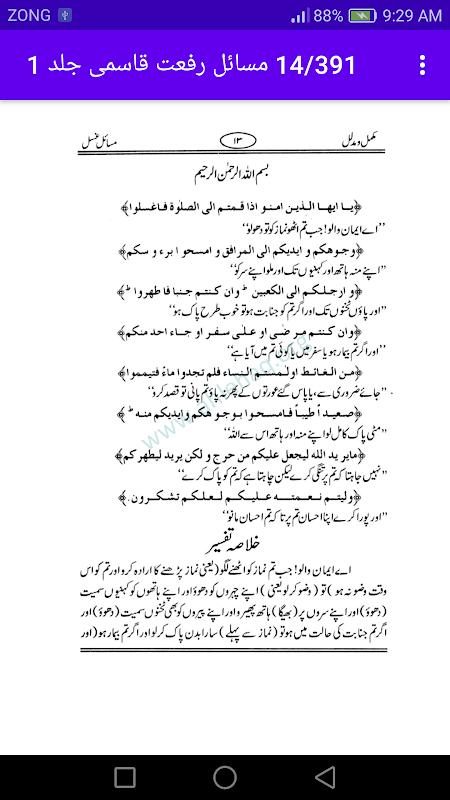 ZONG 88% 9:29 AM
14/391 مسائل رفعت قاسمی جلد 1
مکمل و مدلل ۱۳ مسائل غسل
بسم اللہ الرحمٰن الرحیم
﴿یا ایھا الذین امنو اذا قمتم الی الصلٰوة فاغسلوا﴾
’’اے ایمان والو! جب تم اٹھو نماز کو تو دھولو‘‘
﴿وجوھکم و ایدیکم الی المرافق و امسحوا برء و سکم﴾
’’اپنے منہ ہاتھ اور کہنیوں تک اور ملو اپنے سر کو‘‘
﴿و ارجلکم الی الکعبین ط وان کنتم جنبا فاطھروا ط﴾
’’اور پاؤں ٹخنوں تک اور اگر تم کو جنابت ہو تو خوب طرح پاک ہو‘‘
﴿وان کنتم مرضٰی او علٰی سفر او جاء احد منکم﴾
’’اور اگر تم بیمار ہو یا سفر میں یا کوئی تم میں آیا ہے‘‘
﴿من الغائط اولٰمستم النساء فلم تجدوا ماءً فتیمموا﴾
’’جائے ضروری سے، یا پاس گئے عورتوں کے پھر نہ پاؤ تم پانی تو قصد کرو‘‘
﴿صعیداً طیباً فامسحوا بوجوھکم وایدیکم منہ ط﴾
’’مٹی پاک کا مل لو اپنے منہ اور ہاتھ اس سے اللہ‘‘
﴿مایرید اللہ لیجعل علیکم من حرج و لکن یرید لیطھرکم﴾
’’نہیں چاہتا کہ تم پر تنگی کرے لیکن چاہتا ہے کہ تم کو پاک کرے‘‘
﴿ولیتم نعمتہ علیکم لعلکم تشکرون.﴾
’’اور پورا کرے اپنا احسان تم پر تا کہ تم احسان مانو‘‘
خلاصہ تفسیر
اے ایمان والو! جب تم نماز کو اٹھنے لگو (یعنی نماز پڑھنے کا ارادہ کرو اور تم کو اس
وقت وضو نہ ہو) تو (وضو کر لو یعنی) اپنے چہروں کو دھوؤ اور اپنے ہاتھوں کو کہنیوں سمیت
(دھوؤ) اور اپنے سروں پر (بھیگا) ہاتھ پھیرو اور اپنے پیروں کو بھی ٹخنوں سمیت (دھوؤ) اور
اگر تم جنابت کی حالت میں ہو تو (نماز سے پہلے) سارا بدن پاک کرلو اور اگر تم بیمار ہو (اور